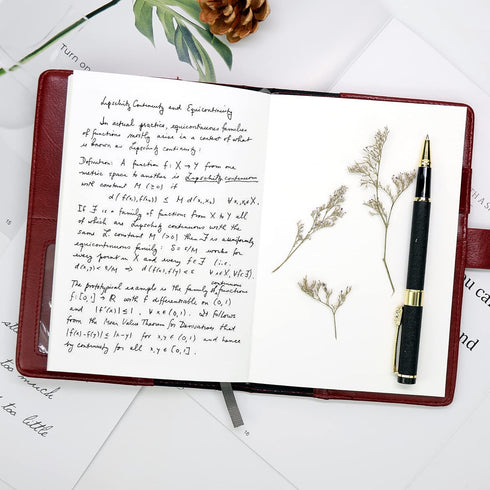 Lipschitz Continuity and Equicontinuity
In actual practice, equicontinuous families
of functions mostly arise in a context of what
is known as Lipschitz continuity:
Definition: A function f: X → Y from one
metric space to another is Lipschitz continuous
with constant M (≥0) if
d(f(x₁),f(x₂)) ≤ M d(x₁,x₂) ∀ x₁,x₂∈X.
If ℱ is a family of functions from X to Y all
of which are Lipschitz continuous with the
same L constant M (>0) then ℱ is a uniformly
equicontinuous family: δ = ε/M works for
every point in X and every f∈ℱ (i.e.
d(x,y) < ε/M ⇒ d(f(x),f(y)) < ε ∀ x∈X, ∀f∈ℱ).
The prototypical example is the family of continuous functions
f: [0,1] → ℝ with f differentiable on (0,1)
and |f'(x)| ≤ 1, ∀ x∈(0,1). It follows
from the Mean Value Theorem for Derivatives that
|f(x)-f(y)| ≤ |x-y| for x,y∈(0,1) and hence
by continuity for all x,y∈[0,1].
Turn on
too much
too little
you ca
16